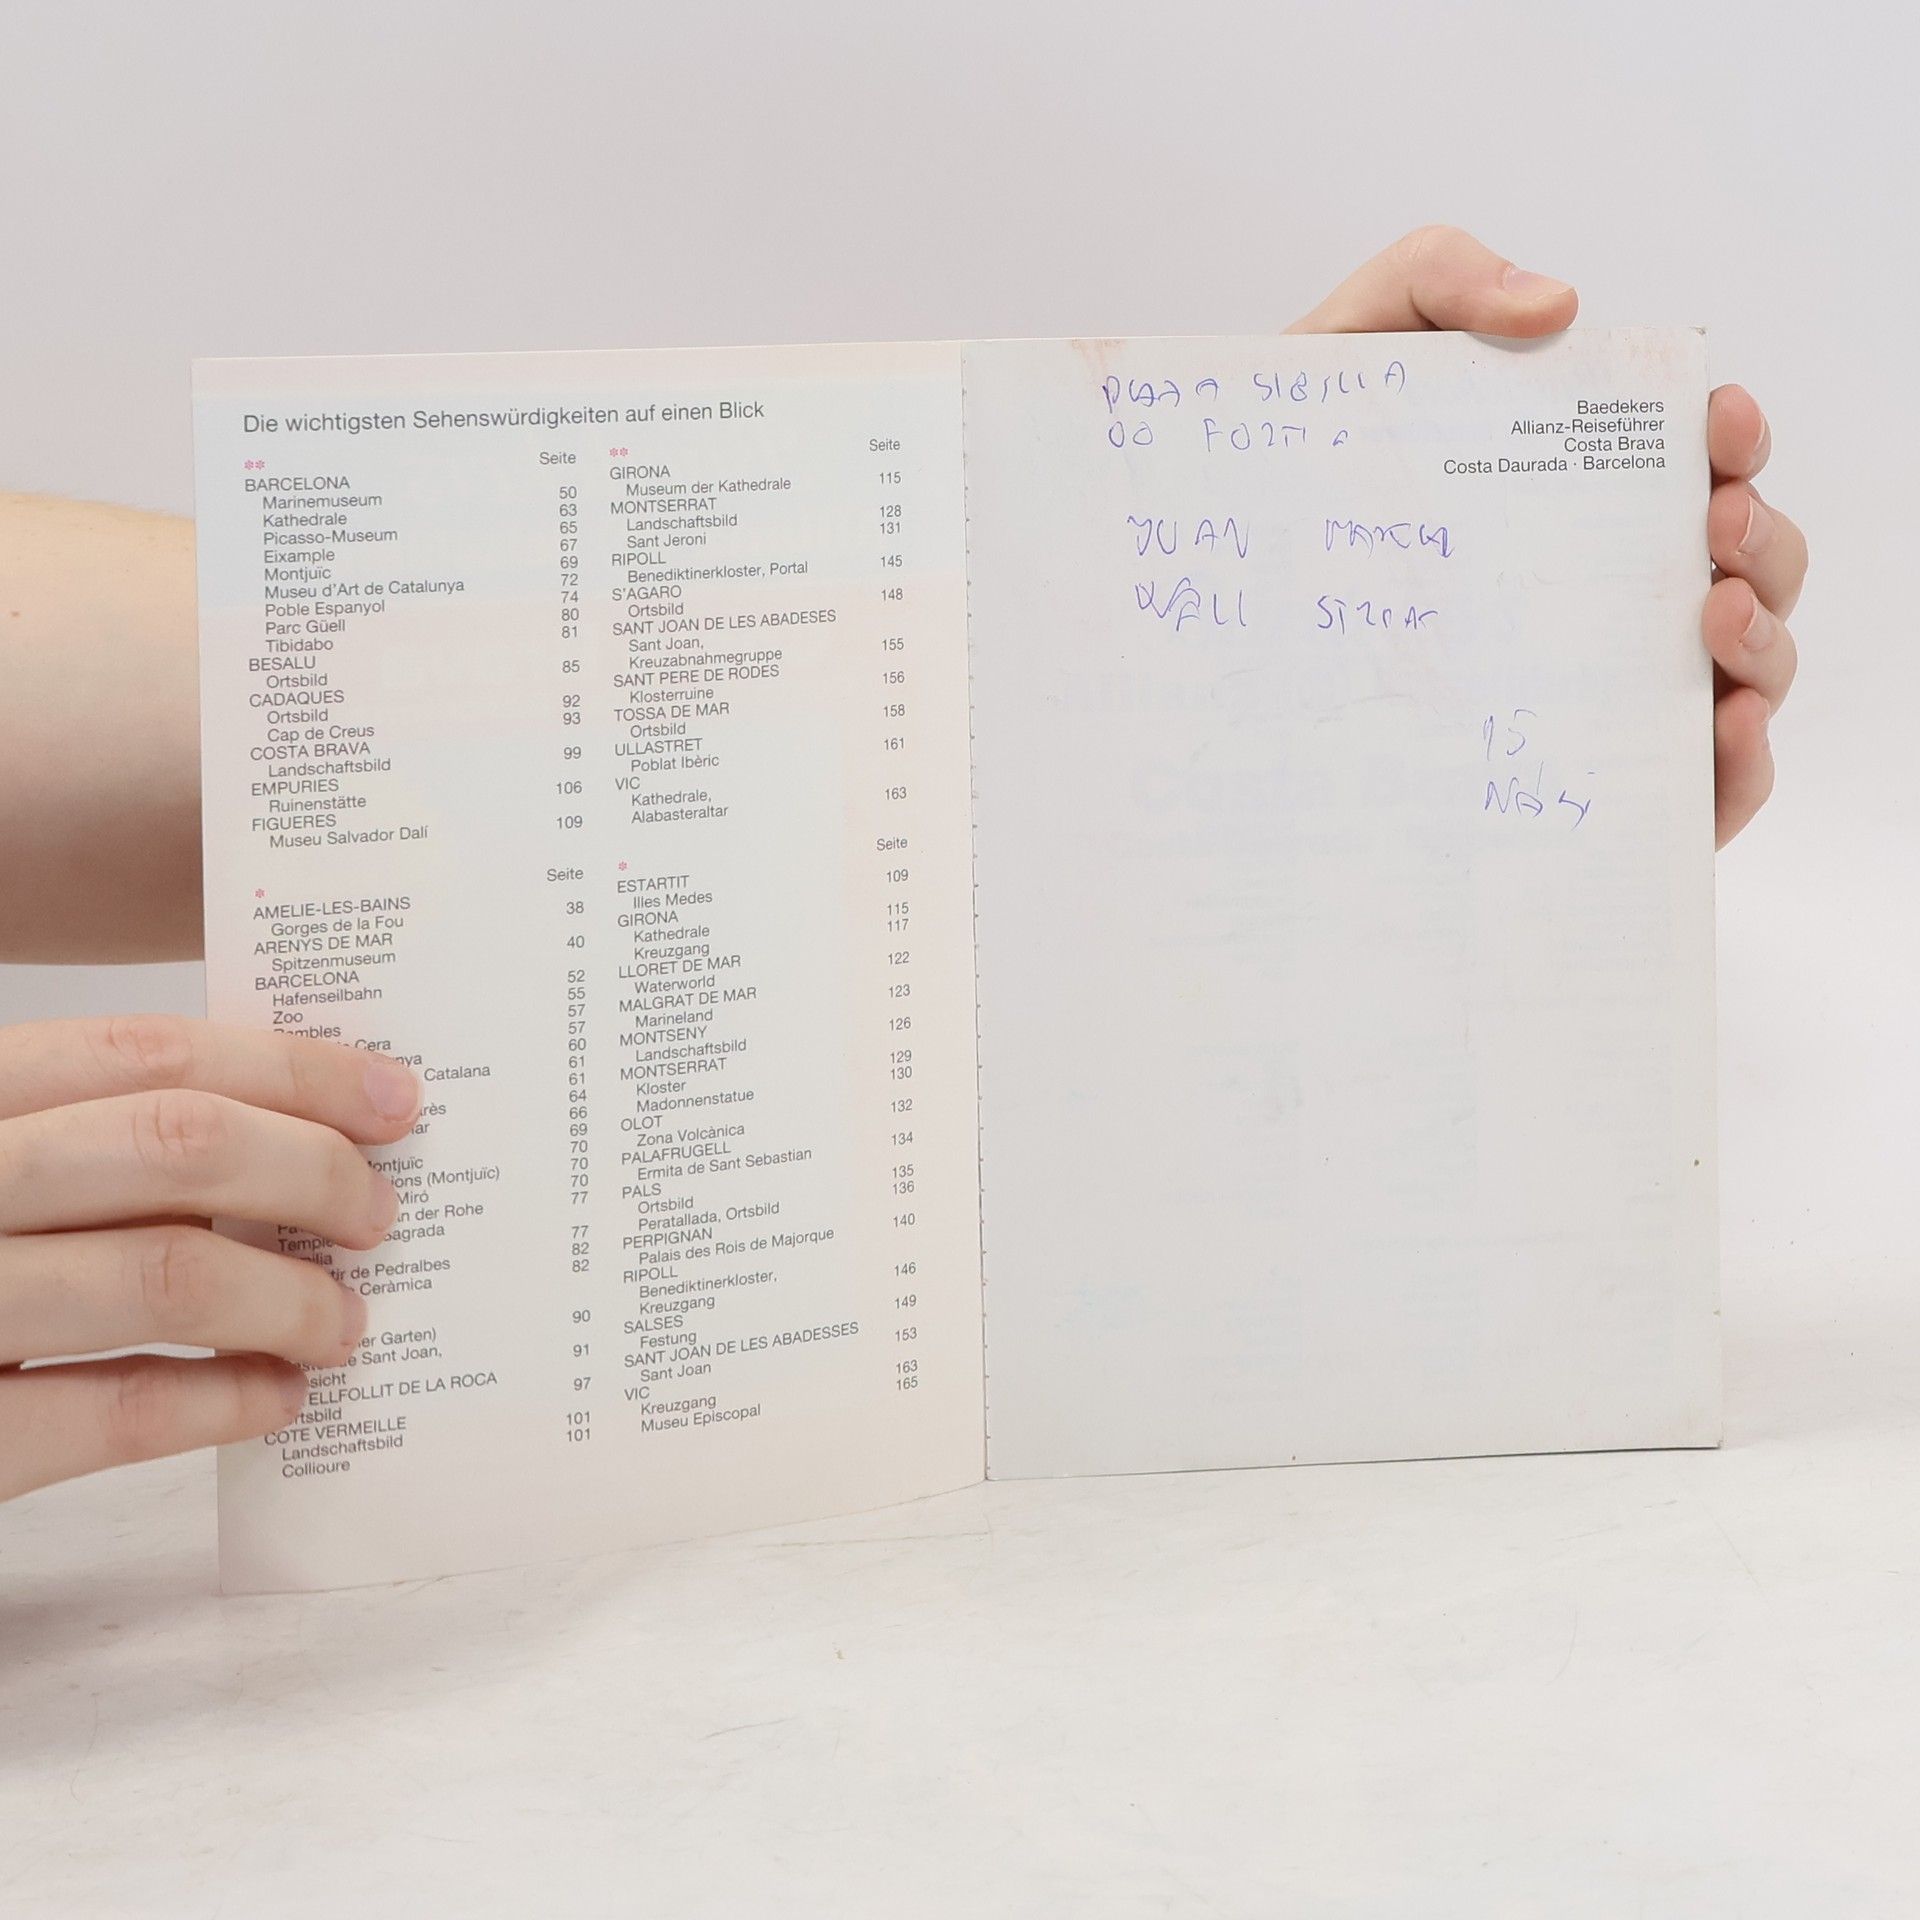 Die wichtigsten Sehenswürdigkeiten auf einen Blick
** Seite
BARCELONA
Marinemuseum 50
Kathedrale 63
Picasso-Museum 65
Eixample 67
Montjuïc 69
Museu d'Art de Catalunya 72
Poble Espanyol 74
Parc Güell 80
Tibidabo 81
BESALU
Ortsbild 85
CADAQUES
Ortsbild 92
Cap de Creus 93
COSTA BRAVA
Landschaftsbild 99
EMPURIES
Ruinenstätte 106
FIGUERES
Museu Salvador Dalí 109
** Seite
GIRONA
Museum der Kathedrale 115
MONTSERRAT
Landschaftsbild 128
Sant Jeroni 131
RIPOLL
Benediktinerkloster, Portal 145
S'AGARO
Ortsbild 148
SANT JOAN DE LES ABADESES
Sant Joan,
Kreuzabnahmegruppe 155
SANT PERE DE RODES
Klosterruine 156
TOSSA DE MAR
Ortsbild 158
ULLASTRET
Poblat Ibèric 161
VIC
Kathedrale,
Alabasteraltar 163
* Seite
AMELIE-LES-BAINS
Gorges de la Fou 38
ARENYS DE MAR
Spitzenmuseum 40
BARCELONA
Hafenseilbahn 52
Zoo 55
57
Cera 57
60
Catalana 61
61
64
66
69
Montjuïc 70
(Montjuïc) 70
Miró 70
der Rohe 77
Sagrada
77
de Pedralbes 82
Ceràmica 82
Garten) 90
de Sant Joan,
91
ELLFOLLIT DE LA ROCA
97
COTE VERMEILLE
Landschaftsbild 101
Collioure 101
* Seite
ESTARTIT
Illes Medes 109
GIRONA
Kathedrale 115
Kreuzgang 117
LLORET DE MAR
Waterworld 122
MALGRAT DE MAR
Marineland 123
MONTSENY
Landschaftsbild 126
MONTSERRAT
Kloster 129
Madonnenstatue 130
OLOT
Zona Volcànica 132
PALAFRUGELL
Ermita de Sant Sebastian 134
PALS
Ortsbild 135
Peratallada, Ortsbild 136
PERPIGNAN
Palais des Rois de Majorque 140
RIPOLL
Benediktinerkloster,
Kreuzgang 146
SALSES
Festung 149
SANT JOAN DE LES ABADESSES
Sant Joan 153
VIC
Kreuzgang 163
Museu Episcopal 165
Baedekers
Allianz-Reiseführer
Costa Brava
Costa Daurada · Barcelona
JUAN
WALL
15